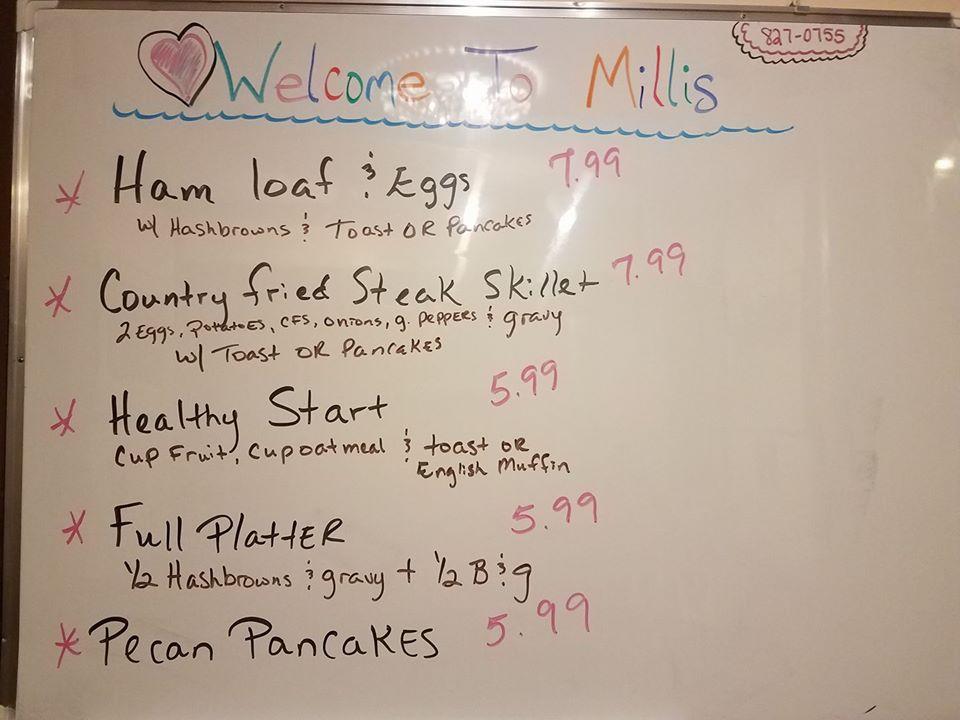 827-0755
Welcome To Millis
* Ham loaf & Eggs 7.99
w/ Hashbrowns & Toast OR Pancakes
* Country fried Steak Skillet 7.99
2 Eggs, Potatoes, CFS, Onions, g. Peppers & gravy
w/ Toast OR Pancakes
* Healthy Start 5.99
Cup Fruit, Cup oatmeal & toast OR
English Muffin
* Full Platter 5.99
1/2 Hashbrowns & gravy + 1/2 B & g
* Pecan Pancakes 5.99